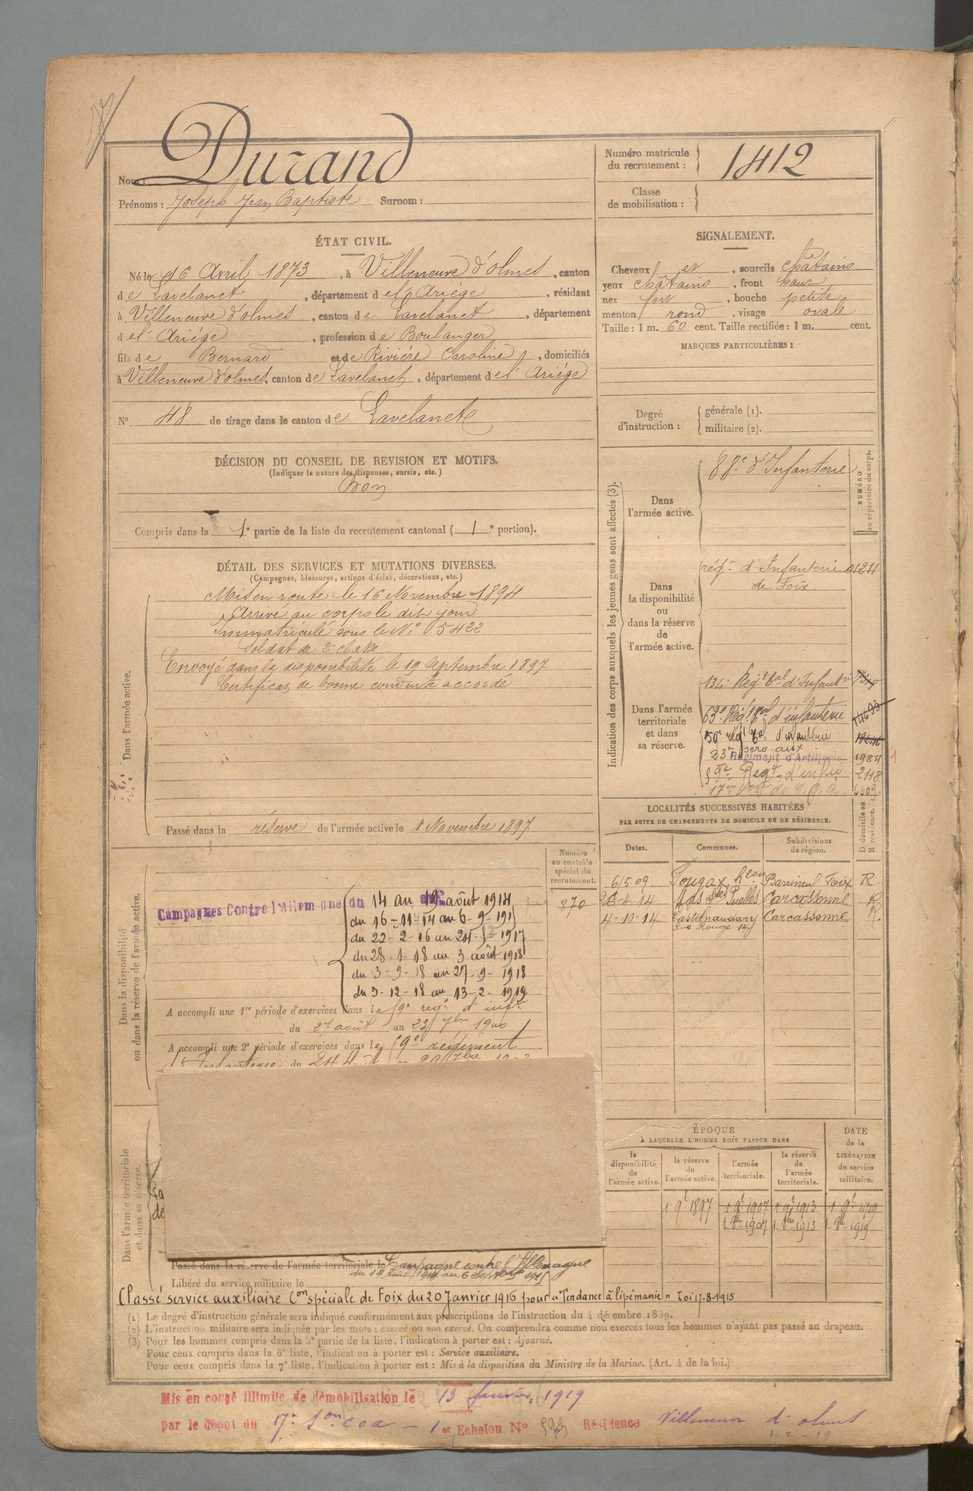 Nom: Durand
Prénoms: Joseph Jean Baptiste Surnom:
Numéro matricule
du recrutement: 1412
Classe
de mobilisation:
ÉTAT CIVIL.
Né le 16 Avril 1873, à Villeneuve d'olmes, canton
de Lavelanet, département de l'Ariége, résidant
à Villeneuve d'olmes, canton de Lavelanet, département
de l'Ariége, profession de Boulanger
fils de Bernard et de Rivière Caroline, domiciliés
à Villeneuve d'olmes, canton de Lavelanet, département de l'Ariége
N° 48 de tirage dans le canton de Lavelanet
DÉCISION DU CONSEIL DE REVISION ET MOTIFS.
(Indiquer la nature des dispenses, sursis, etc.)
Bon
Compris dans la 1e partie de la liste du recrutement cantonal (1e portion).
DÉTAIL DES SERVICES ET MUTATIONS DIVERSES.
(Campagnes, blessures, actions d'éclat, décorations, etc.)
Dans l'armée active.
Mis en route le 16 Novembre 1894
Arrivé au corps le dit jour
Immatriculé sous le N° 5422
Soldat de 2e classe
Envoyé dans la disponibilité le 19 Septembre 1897
Certificat de bonne conduite accordé
Passé dans la réserve de l'armée active le 1 Novembre 1897
SIGNALEMENT.
Cheveux et, sourcils chatains
yeux chatains, front haut
nez fort, bouche petite
menton rond, visage ovale
Taille: 1 m. 60 cent. Taille rectifiée: 1 m. cent.
MARQUES PARTICULIÈRES:
Degré
d'instruction:
générale (1).
militaire (2).
Indication des corps auxquels les jeunes gens sont affectés (3).
NUMÉRO
au répertoire du corps.
Dans
l'armée active.
88e d'Infanterie
Dans
la disponibilité
ou
dans la réserve
de
l'armée active.
régt d'Infanterie
de Foix
Dans l'armée
territoriale
et dans
sa réserve.
134e Régt Tal d'Infant
63e Régt Tal d'infanterie
59e régt Tal d'infantrie
23e Régiment d'Artillerie 1984
59e Regt d'infie 2118
LOCALITÉS SUCCESSIVES HABITÉES
PAR SUITE DE CHANGEMENTS DE DOMICILE OU DE RÉSIDENCE.
Dates.
Communes.
Subdivisions
de région.
D domicile ou
R résidence.
Foix R
Carcassonne R
4-10-14 Castelnaudary Carcassonne R
Numéro
au contrôle
spécial du
recrutement.
870
Dans la disponibilité
ou dans la réserve de l'armée active.
Campagnes Contre l'Allemagne du 14 au 19 août 1914
du 16-11-14 au 6-9-191
du 22-2-16 au 1917
du 28-1-18 au 3 août 1918
du 3-9-18 au 27-9-1918
du 3-12-18 au 13-2-1919
A accompli une 1re période d'exercices dans le 59e regt d'inf.
du 27 août au 23 7bre 1900
A accompli une 2e période d'exercices dans le 59e régiment
Dans l'armée territoriale
et dans sa réserve.
Passé dans la réserve de l'armée territoriale le Campagne contre l'Allemagne
Libéré du service militaire le
Classé service auxiliaire Con spéciale de Foix du 20 Janvier 1916 pour "Tendance à lipémanie" Loi 17-8-1915
ÉPOQUE
À LAQUELLE L'HOMME DOIT PASSER DANS
la
disponibilité
de
l'armée active.
la réserve
de
l'armée active.
l'armée
territoriale.
la réserve
de
l'armée
territoriale.
DATE
de la
LIBÉRATION
du service
militaire.
1 9e 1897 1 9e 1907 1 9e 1913 1 9e 1919
(1) Le degré d'instruction générale sera indiqué conformément aux prescriptions de l'instruction du 4 décembre 1889.
(2) L'instruction militaire sera indiquée par les mots: exercé ou non exercé. On comprendra comme non exercés tous les hommes n'ayant pas passé au drapeau.
(3) Pour les hommes compris dans la 5e partie de la liste, l'indication à porter est: Ajourné.
Pour ceux compris dans la 6e liste, l'indication à porter est: Service auxiliaire.
Pour ceux compris dans la 7e liste, l'indication à porter est: Mis à la disposition du Ministre de la Marine. (Art. 4 de la loi.)
Mis en congé illimité de démobilisation le 13 février 1919
par le dépôt du 17e Son coa - 1er Echelon N° 593 Résidence Villeneuve d'olmes